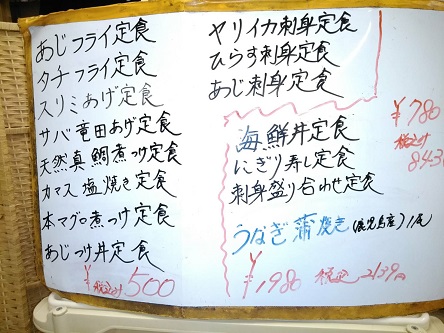 あじフライ定食
タチフライ定食
スリミあげ定食
サバ竜田あげ定食
天然真鯛煮つけ定食
カマス塩焼き定食
本マグロ煮つけ定食
あじつけ丼定食
¥税込み500
ヤリイカ刺身定食
ひらす刺身定食
あじ刺身定食
海鮮丼定食
にぎり寿し定食
刺身盛り合わせ定食
¥780
税込み
843
うなぎ蒲焼き(鹿児島産)1尾
¥1,980 税込 2139円